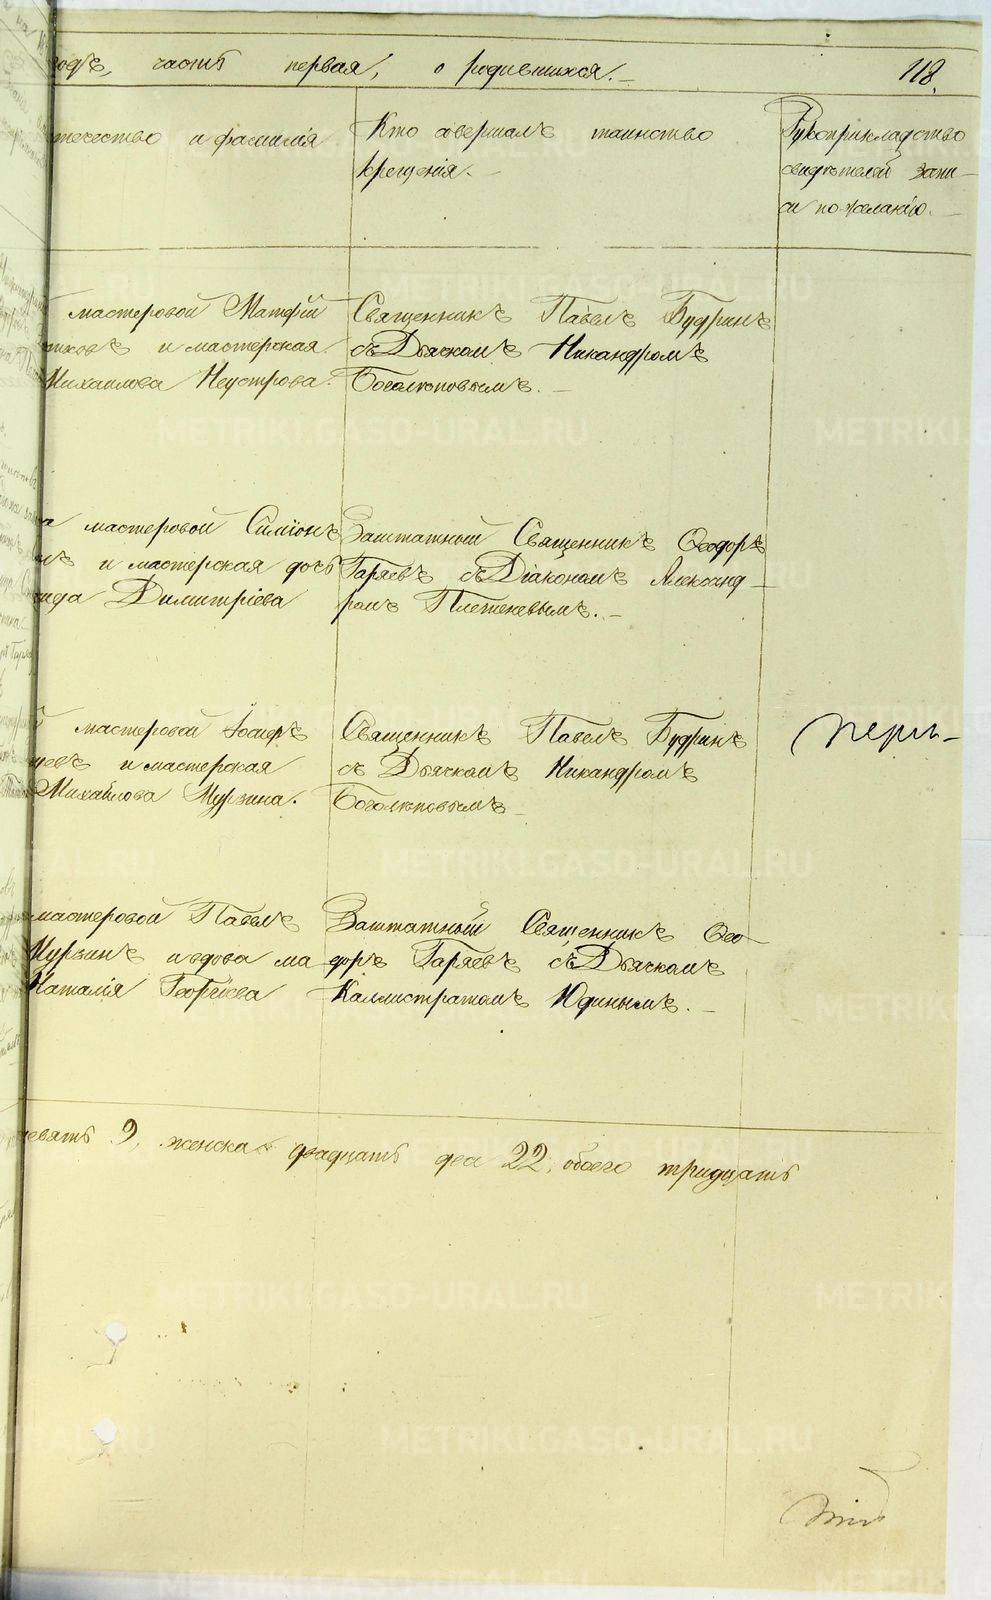 годъ, часть первая, о родившихся.
118.
течество и фамилія
Кто совершалъ таинство
крещенія.
Рукоприкладство
свидѣтелей запи-
си по желанію.
мастеровой Матфій
и мастерская
Михаилова Неустрова.
Священникъ Павелъ Будринъ
съ Дьячкомъ Никандромъ
Боголюповымъ.
мастеровой Симіонъ
нъ и мастерская дочь
Димитріева
Заштатный Священникъ Ѳеодоръ
Гаряевъ съ Діакономъ Александ-
ромъ Плетеневымъ.
й мастеровой Іосифъ
цевъ и мастерская
Михайлова Мурзина.
Священникъ Павелъ Будринъ
съ Дьячкомъ Никандромъ
Боголюповымъ
мастеровой Павелъ
Мурзинъ и вдова ма
Наталія Георгіева
Заштатный Священникъ Ѳео-
доръ Гаряевъ съ Дьячкомъ
Каллистратомъ Юдинымъ.
девять 9, женска двадцать два 22, обоего тридцать
METRIKI.GASO-URAL.RU